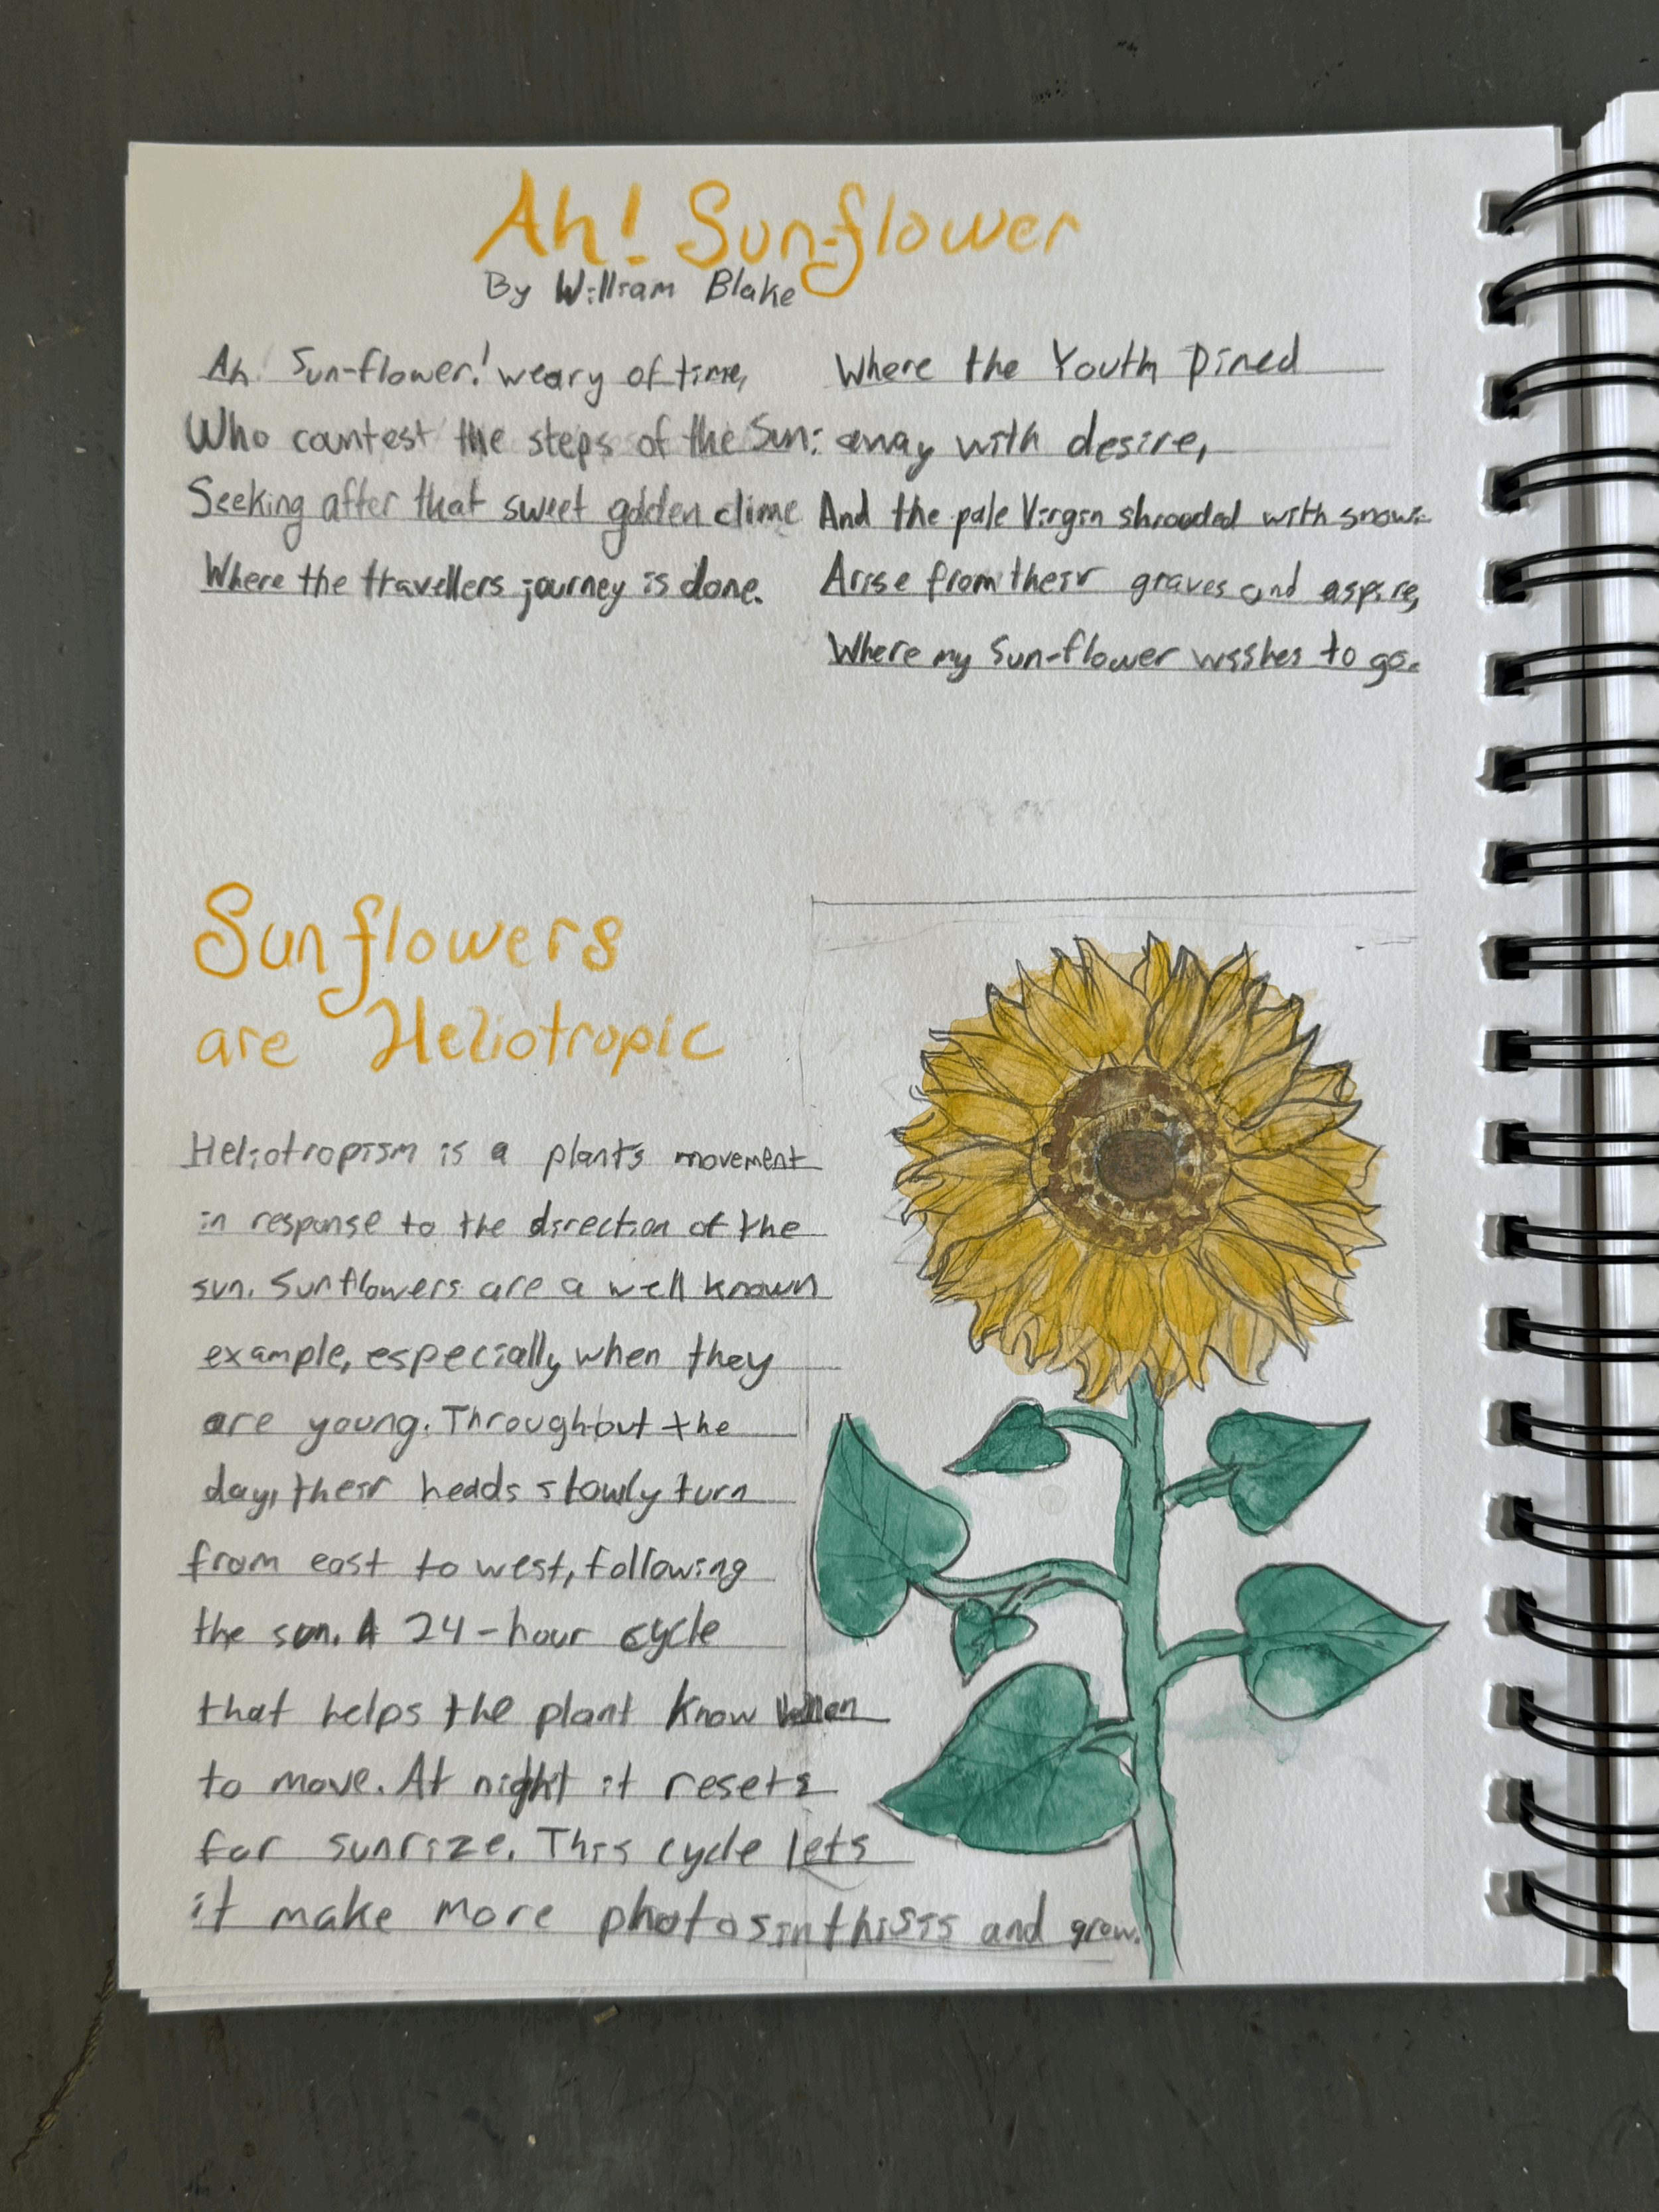 Ah! Sun-flower
By William Blake
Ah! Sun-flower! weary of time,
Who countest the steps of the Sun:
Seeking after that sweet golden clime
Where the travellers journey is done.
Where the Youth pined
away with desire,
And the pale Virgin shrouded with snow:
Arise from their graves and aspire,
Where my Sun-flower wishes to go.
Sunflowers
are Heliotropic
Heliotropism is a plants movement
in response to the direction of the
sun. Sunflowers are a well known
example, especially when they
are young. Throughout the
day, their heads slowly turn
from east to west, following
the sun. A 24-hour cycle
that helps the plant know when
to move. At night it resets
for sunrize. This cycle lets
it make more photosinthisis and grow.